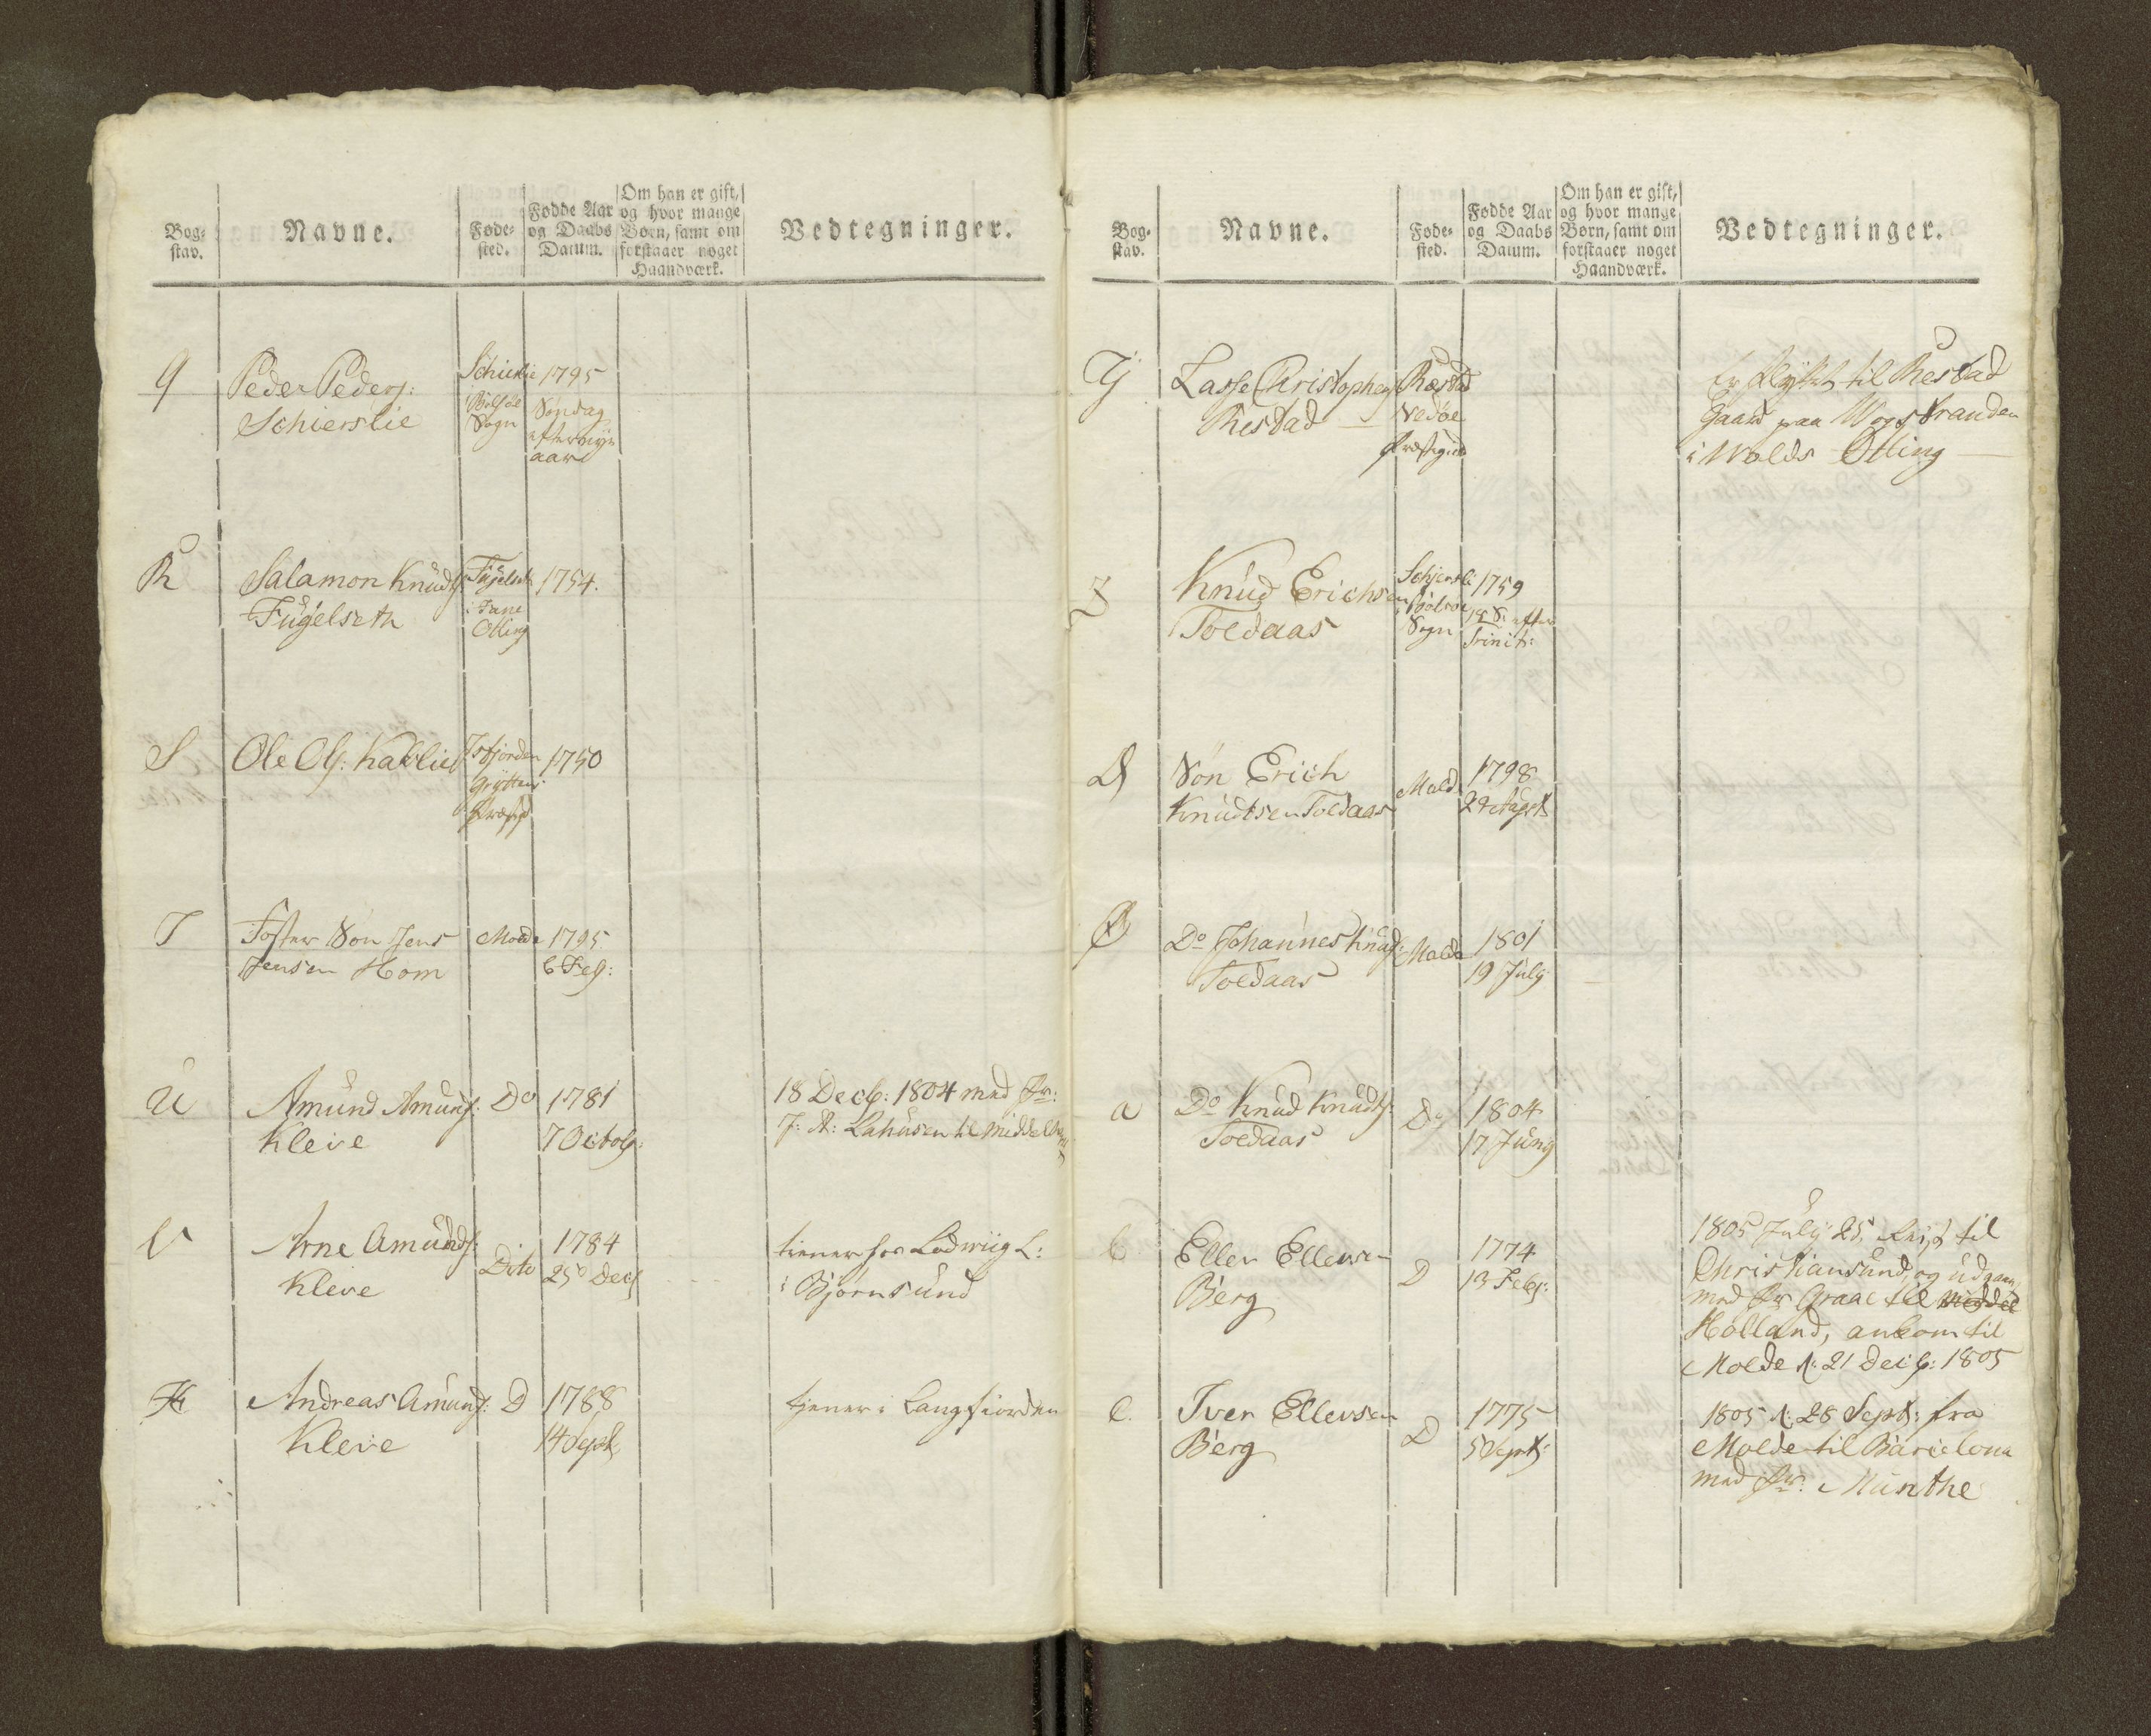 Bog-
stav.
Navne.
Føde-
sted.
Fødde Aar
og Daabs
Datum.
Om han er gift,
og hvor mange
Børn, samt om
forstaaer noget
Haandværk.
Vedtegninger.
q
Peder Peders:
Schierslie
Schierslie
Bolsøe
Sogn
1795
Søndag
efter nyt
aar
R
Salamon Knudts:
Fugelseth
Fugelset
i Fane
Otting
1754.
S
Ole Ols: Kavlie
Isfjorden
Gryttens
Præstg
1750
T
Foster Søn Jens
Jensen Hom
Molde
1795
6 Feb:
U
Amund Amunds:
Kleve
Do
1781
7 Octob:
18 Decb: 1804 med Skr:
J: A: Lahusen til Middelb
V
Arne Amunds:
Kleve
Dito
1784
25 Decb
tiener hos Lodwiig L:
i Bjørnsund
X
Andreas Amunds:
Kleve
D
1788
14 Sept
tjener i Langfiorden
Bog-
stav.
Navne.
Føde-
sted.
Fødde Aar
og Daabs
Datum.
Om han er gift,
og hvor mange
Børn, samt om
forstaaer noget
Haandværk.
Vedtegninger.
Y
Lasse Christophers
Restad
Restad
Vedøe
Præstegield
Er flyttet til Restad
Gaard paa Wogstranden
i Wolds Otling
Z
Knud Erichsen
Toldaas
Schjersli
Bolsøe
Sogn
1759
18 S: efter
Trinit:
Æ
Søn Erich
Knudtsen Toldaas
Molde
1798
24 Augst
Ø
Do Johannes Knuds:
Toldaas
Molde
1801
19 July
a
Do Knud Knudts:
Toldaas
Do
1804
17 Juny
b
Eller Ellevsen
Berg
D
1774
13 Feb:
1805 July 25, Reist til
Christiansund, og udgaaen
med Skr Graae til Middel
Holland, ankom til
Molde d: 21 Decb: 1805
c.
Iver Ellevsen
Berg
D
1775
5 Sept:
1805 d: 28 Sept: fra
Molde til Barcelona
med Skr: Munthe